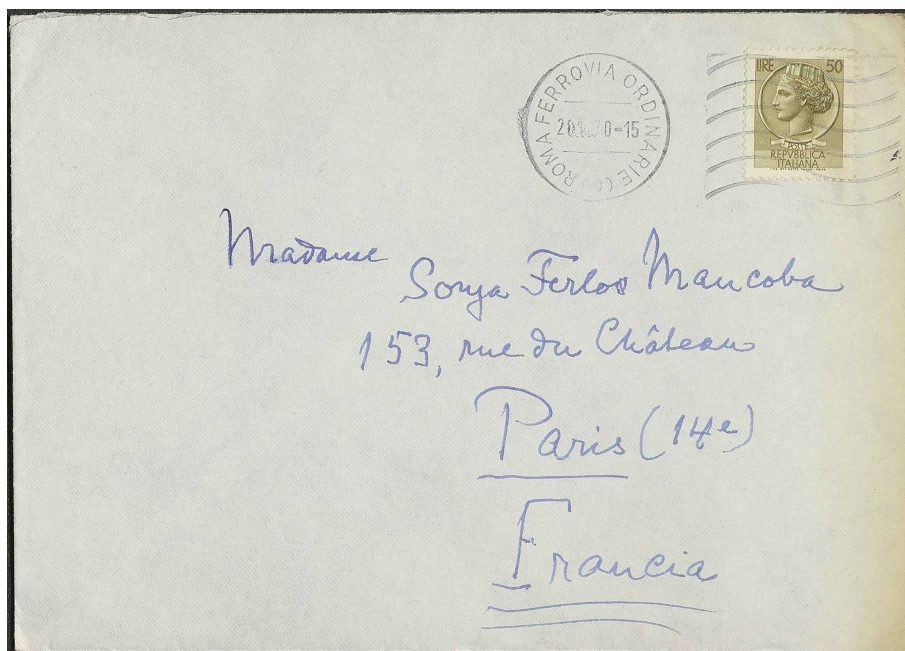 ROMA FERROVIA ORDINARIE
-15
LIRE 50
POSTE
REPVBBLICA
ITALIANA
Madame
Sonja Ferlov Mancoba
153, rue du Château
Paris (14e)
Francia